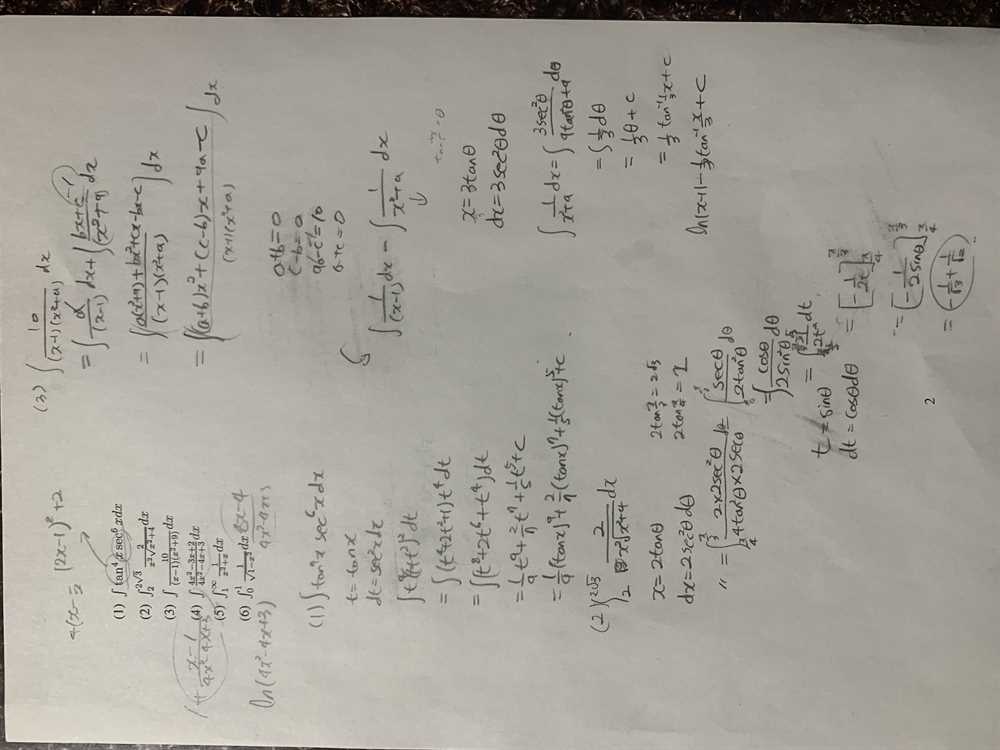 4(x-½ (2x-1)²+2
(1) ∫tan⁴ x sec⁶ xdx
(2) ∫₂^{2√3} 2/(x²√(x²+4)) dx
(3) ∫ 10/((x-1)(x²+9)) dx
(4) ∫ (4x²-3x+2)/(4x²-4x+3) dx
(5) ∫₁^∞ 1/(x²+x) dx
(6) ∫₀¹ 1/√(1-x²) dx
1+ (x-1)/(4x²-4x+3)
8x-4
4x²-4x+3
ln(4x²-4x+3)
(1) ∫tan⁴x sec⁶xdx
t=tanx
dt=sec²xdx
∫t⁴(1+t²)²dt
=∫(t⁴+2t²+1)t⁴dt
=∫(t⁸+2t⁶+t⁴)dt
=1/9 t⁹+2/7 t⁷+1/5 t⁵+C
=1/9(tanx)⁹+2/7(tanx)⁷+1/5(tanx)⁵+C.
(2) ∫₂^{2√3} 2/(x²√(x²+4)) dx
x=2tanθ
dx=2sec²θdθ
2tan π/3=2√3
2tan π/4=2
〃=∫_{π/4}^{π/3} (2×2sec²θ)/(4tan²θ×2secθ) dθ = ∫ secθ/(2tan²θ) dθ
=∫ cosθ/(2sin²θ) dθ
t=sinθ
dt=cosθdθ
=∫ 1/(2t²) dt
=[-1/(2t)]_{π/4}^{π/3}
=[-1/(2sinθ)]_{π/4}^{π/3}
=-1/√3+1/√2
2
(3) ∫ 10/((x-1)(x²+9)) dx
=∫ a/(x-1) dx+∫ (bx+c)/(x²+9) dx
-1
=∫ (a(x²+9)+bx²+cx-bx-c)/((x-1)(x²+9)) dx
=∫ ((a+b)x²+(c-b)x+9a-c)/((x-1)(x²+9)) dx
a+b=0
c-b=0
9a-c=10
b+c=0
∫ 1/(x-1) dx-∫ 1/(x²+9) dx
x=3tanθ
dx=3sec²θdθ
∫ 1/(x²+9) dx=∫ 3sec²θ/(9tan²θ+9) dθ
=∫ 1/3 dθ
=1/3 θ+C
=1/3 tan⁻¹ 1/3 x+C
ln|x-1|-1/3 tan⁻¹ x/3+C